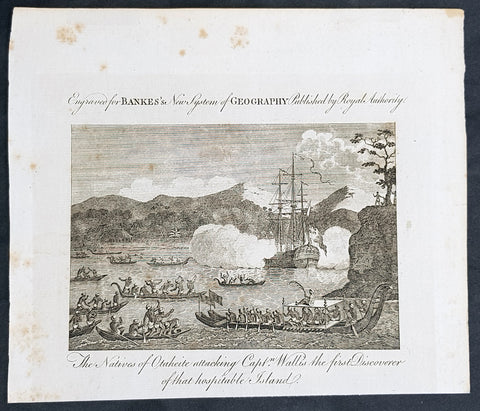 Engraved for BANKES's New System of GEOGRAPHY Published by Royal Authority.
The Natives of Otaheite attacking Captn. Wallis the first Discoverer
of that hospitable Island.